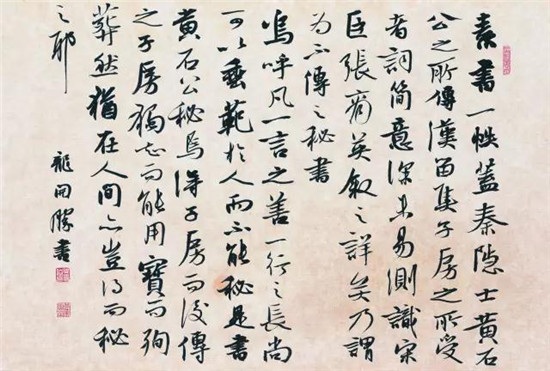 素書一帙蓋秦隱士黃石
公之所傳漢留侯子房之所受
者詞簡意深未易測識宋
臣張商英叙之詳矣乃謂
為不傳之秘書
嗚呼凡一言之善一行之長尚
可以垂範於人而不能秘是書
黃石公秘焉得子房而後傳
之子房獨知而能用寶而殉
葬然猶在人間亦豈得而秘
之耶
龍開勝書